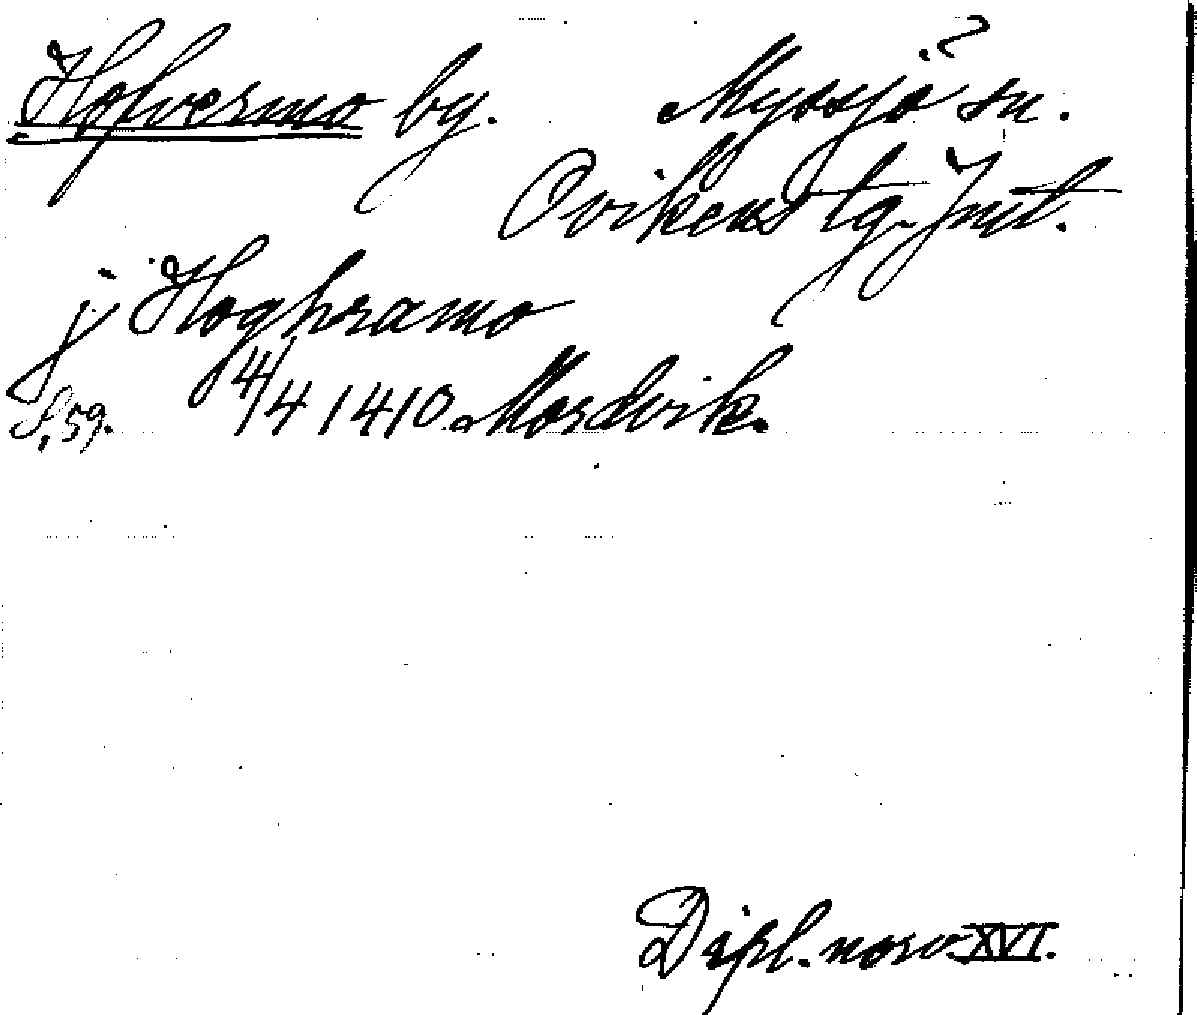 Hofvermo by. Myssjö sn. ?
Ovikens tg. Jmt.
j Hoghramo
S. 59. 4/4 1410 Mordvik.
Dipl. norv. XVI.